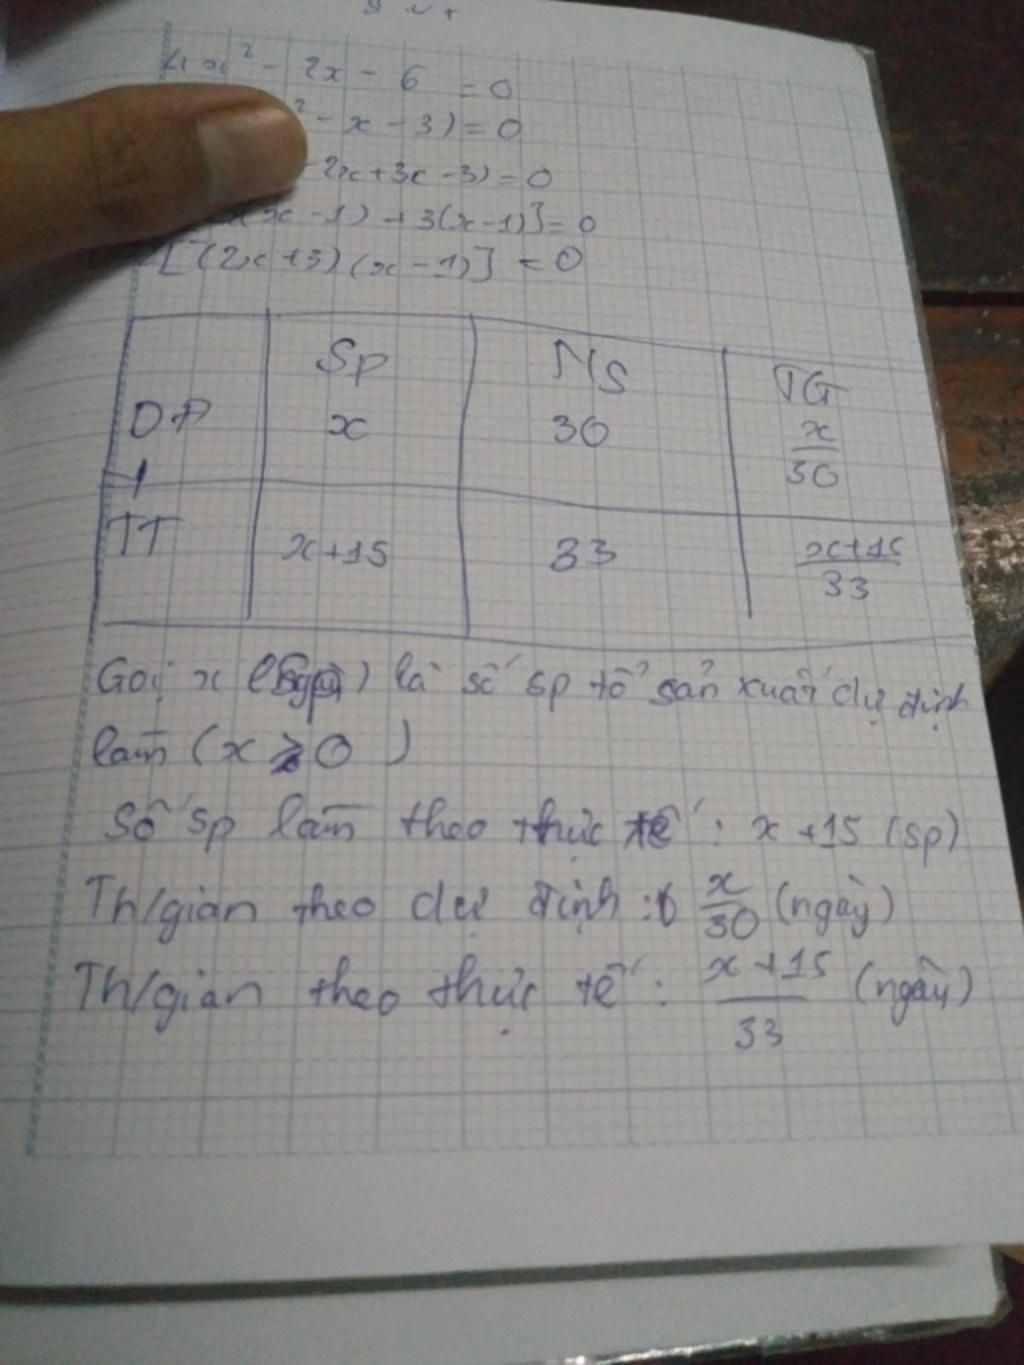 4x² - 2x - 6 = 0
² - x - 3) = 0
- 2x + 3x - 3) = 0
x - 1) + 3(x - 1)] = 0
[(2x + 3)(x - 1)] = 0
Sp NS TG
DĐ x 30 x/30
TT x+15 33 x+15/33
Gọi x là số sp tổ sản xuất dự định
làm (x > 0)
Số sp làm theo thực tế : x + 15 (sp)
Th/gian theo dự định : x/30 (ngày)
Th/gian theo thực tế : x + 15/33 (ngày)